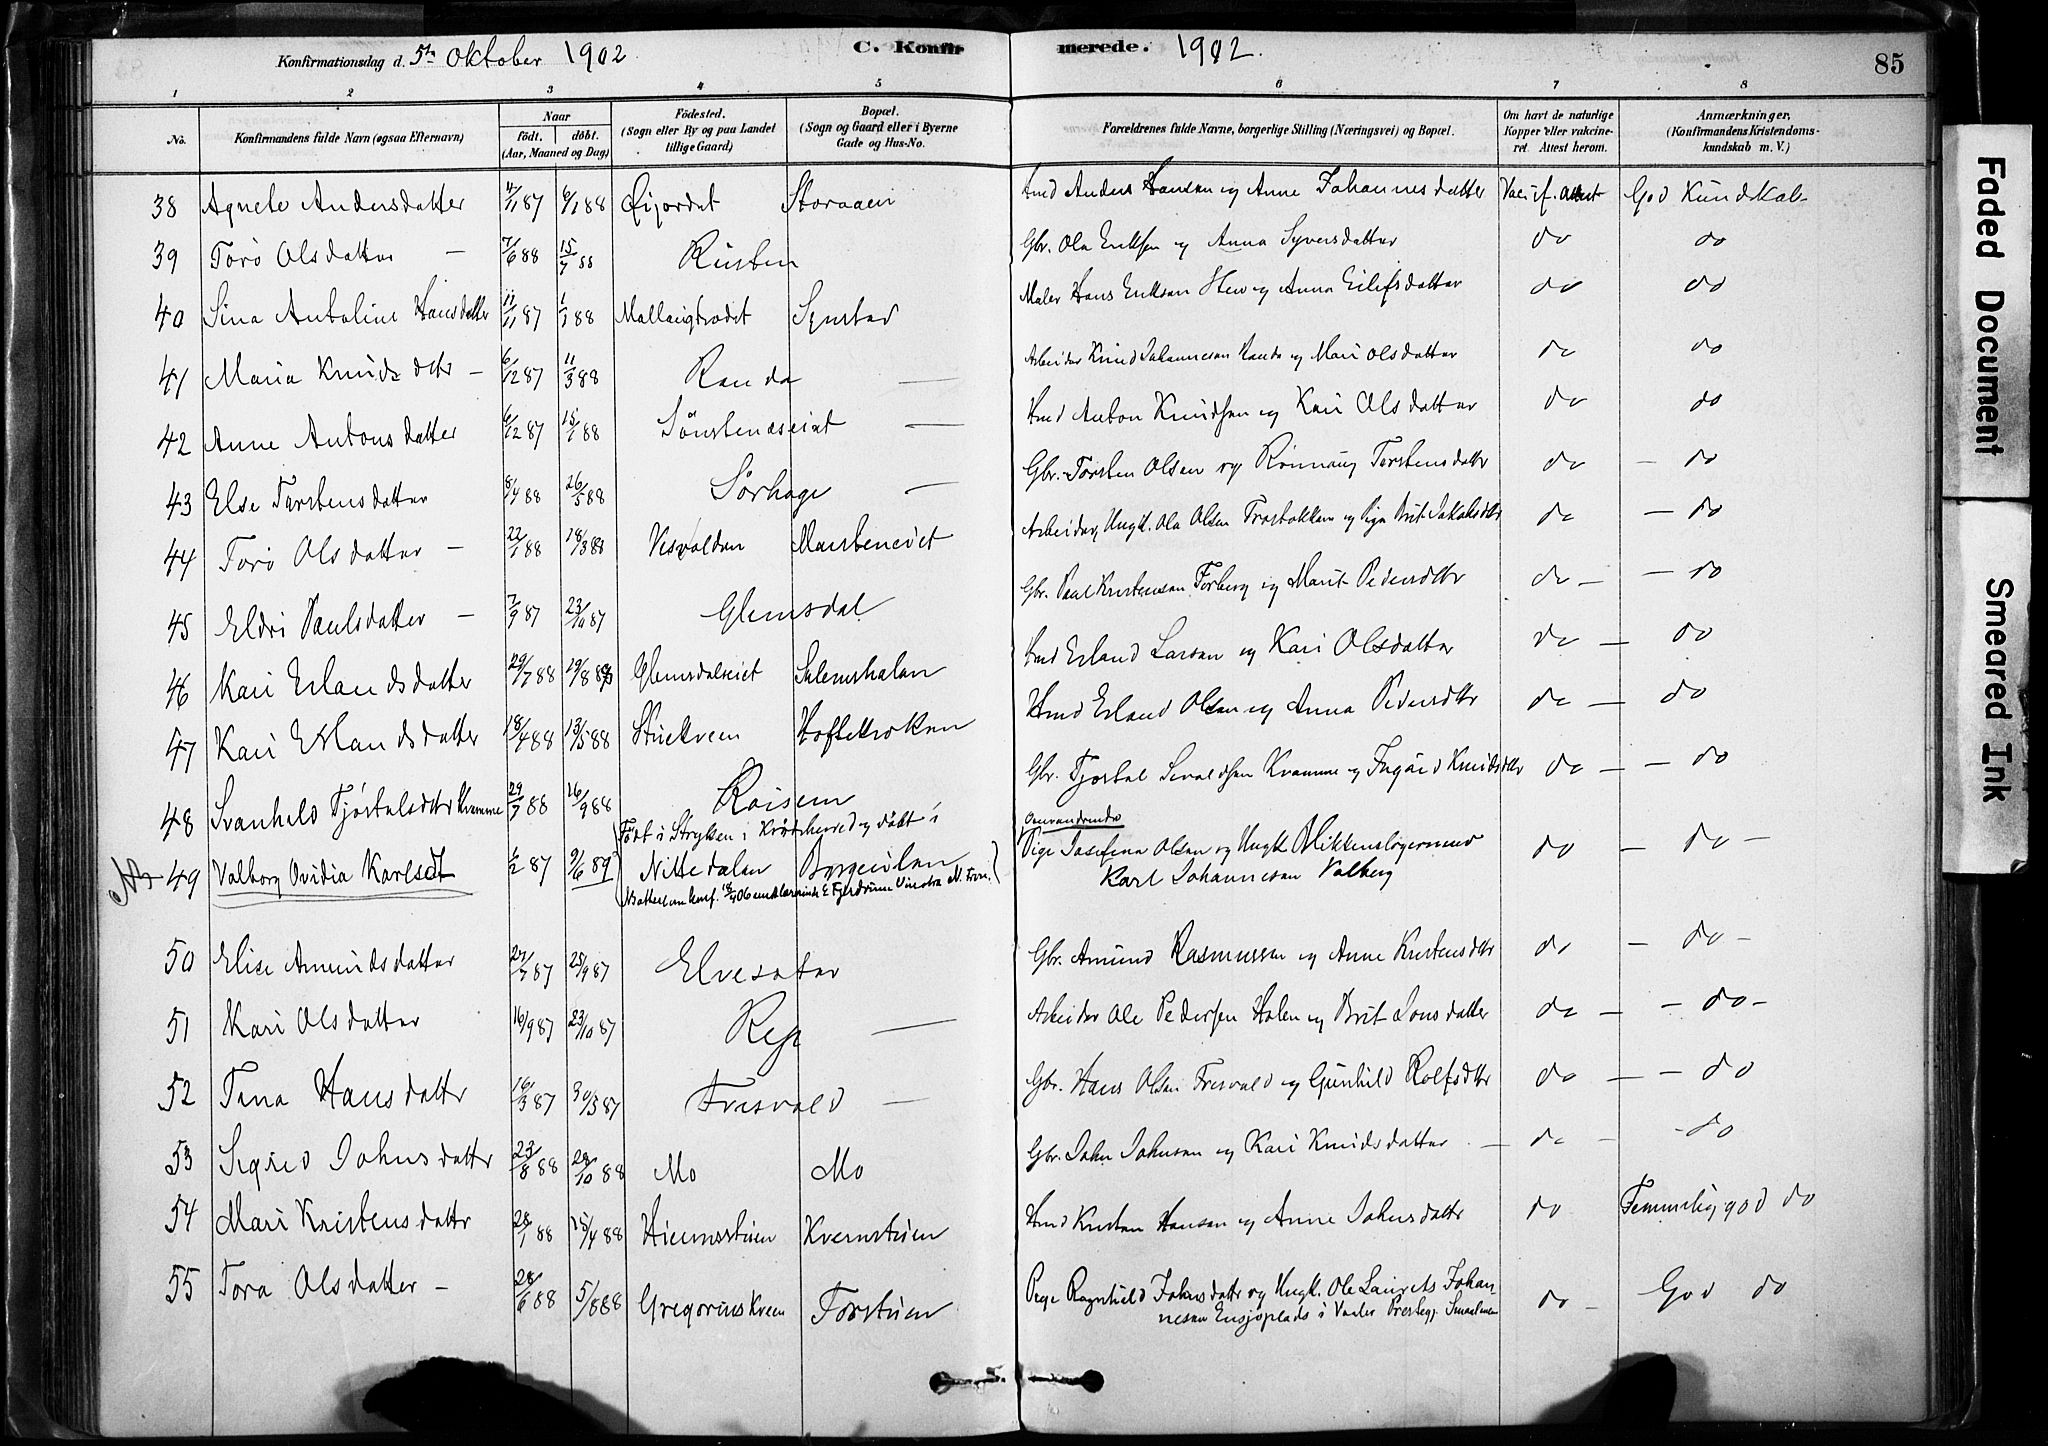 Konfirmationsdag d. 5te Oktober 1902 C. Konfir merede. 1902. 85
1 2 3 4 5 6 7 8
No. Konfirmandens fulde Navn (ogsaa Efternavn) Naar født. døbt. (Aar, Maaned og Dag) Fødested. (Sogn eller By og paa Landet tillige Gaard) Bopæl. (Sogn og Gaard eller i Byerne Gade og Hus-No. Forældrenes fulde Navne, borgerlige Stilling (Næringsvei) og Bopæl. Om havt de naturlige Kopper eller vakcineret. Attest herom. Anmærkninger, (Konfirmandens Kristendomskundskab m. V.)
38 Agnete Andersdatter 4/11 87 6/1 88 Øijordet Storaaen Hmd Anders Hansen og Anne Johannesdatter Vac. if. Attest God Kundskab
39 Toro Olsdatter - 7/6 88 15/7 88 Rusten Gbr. Ola Eriksen og Anna Syversdatter do do
40 Sina Antoline Hansdatter 11/11 87 1/1 88 Synstad Maler Hans Eriksen og Anna Eilefsdatter do do
41 Maria Knudsdtr - 6/12 87 11/3 88 Randa - Arbeider Knud Johannesen Randa og Mari Olsdatter do do
42 Anne Antonsdatter 6/12 87 15/1 88 - Hmd Anton Knudsen og Kari Olsdatter do do
43 Else Torstensdatter 8/4 88 26/5 88 Sørhage - Gbr. Torsten Olsen og Rønnaug Torstensdatter do - do
44 Toro Olsdatter - 22/1 88 18/3 88 Arbeider, Ungk. Ola Olsen og Pige Brit Jakobsdtr do - do
45 Eldri Paulsdatter - 7/9 87 23/10 87 Glemsdal Gbr. Paul Kristensen Forberg og Marit Pedersdtr do - - do
46 Kari Erlandsdatter 29/7 88 19/8 88 Glemsdalseiet Hmd Erland Larsen og Kari Olsdatter do - do
47 Kari Erlandsdatter 18/4 88 13/5 88 Hoftekroken Hmd Erland Olsen og Anna Pedersdtr do - do
48 Svanhild Tjøstulsdtr Kvamme 29/7 88 16/9 88 Roisem Gbr. Tjøstul Sevaldsen Kvamme og Ingård Knudsdtr do - - do
49 Valborg Ovidia Karlsdt 1/2 87 9/6 89 Født i Stryken i og døbt i Nittedalen Pige Josefina Olsen og Ungk. Karl Johannesen Valberg do - do -
50 Elise Amundsdatter 27/7 87 25/9 87 Elvesater Gbr. Amund Rasmussen og Anne Kristensdtr do - do -
51 Kari Olsdatter 16/9 87 23/10 87 Rep - Arbeider Ole Pedersen Holen og Brit Jonsdatter do - - do -
52 Tana Hansdatter 16/3 87 30/3 87 Frisvold - Gbr. Hans Olsen Frisvold og Gunhild Rolfsdtr do - - do
53 Sigrid Johnsdatter 23/8 88 28/10 88 Mo Mo Gbr. John Johnsen og Kari Knudsdatter - do - - do
54 Mari Kristensdatter 28/1 88 15/4 88 Kvernstuen Hmd Kristen Hansen og Anne Johnsdatter do Temmelig god do
55 Tora Olsdatter - 28/6 88 5/8 88 Gregorius Kveen Torstuen Pige Ragnhild Johnsdatter og Ungk. Ole Laurits Johannesen Ensjøplads i Vaaler Prestegj. Smaalenene do - God do
Faded Document
Smeared Ink